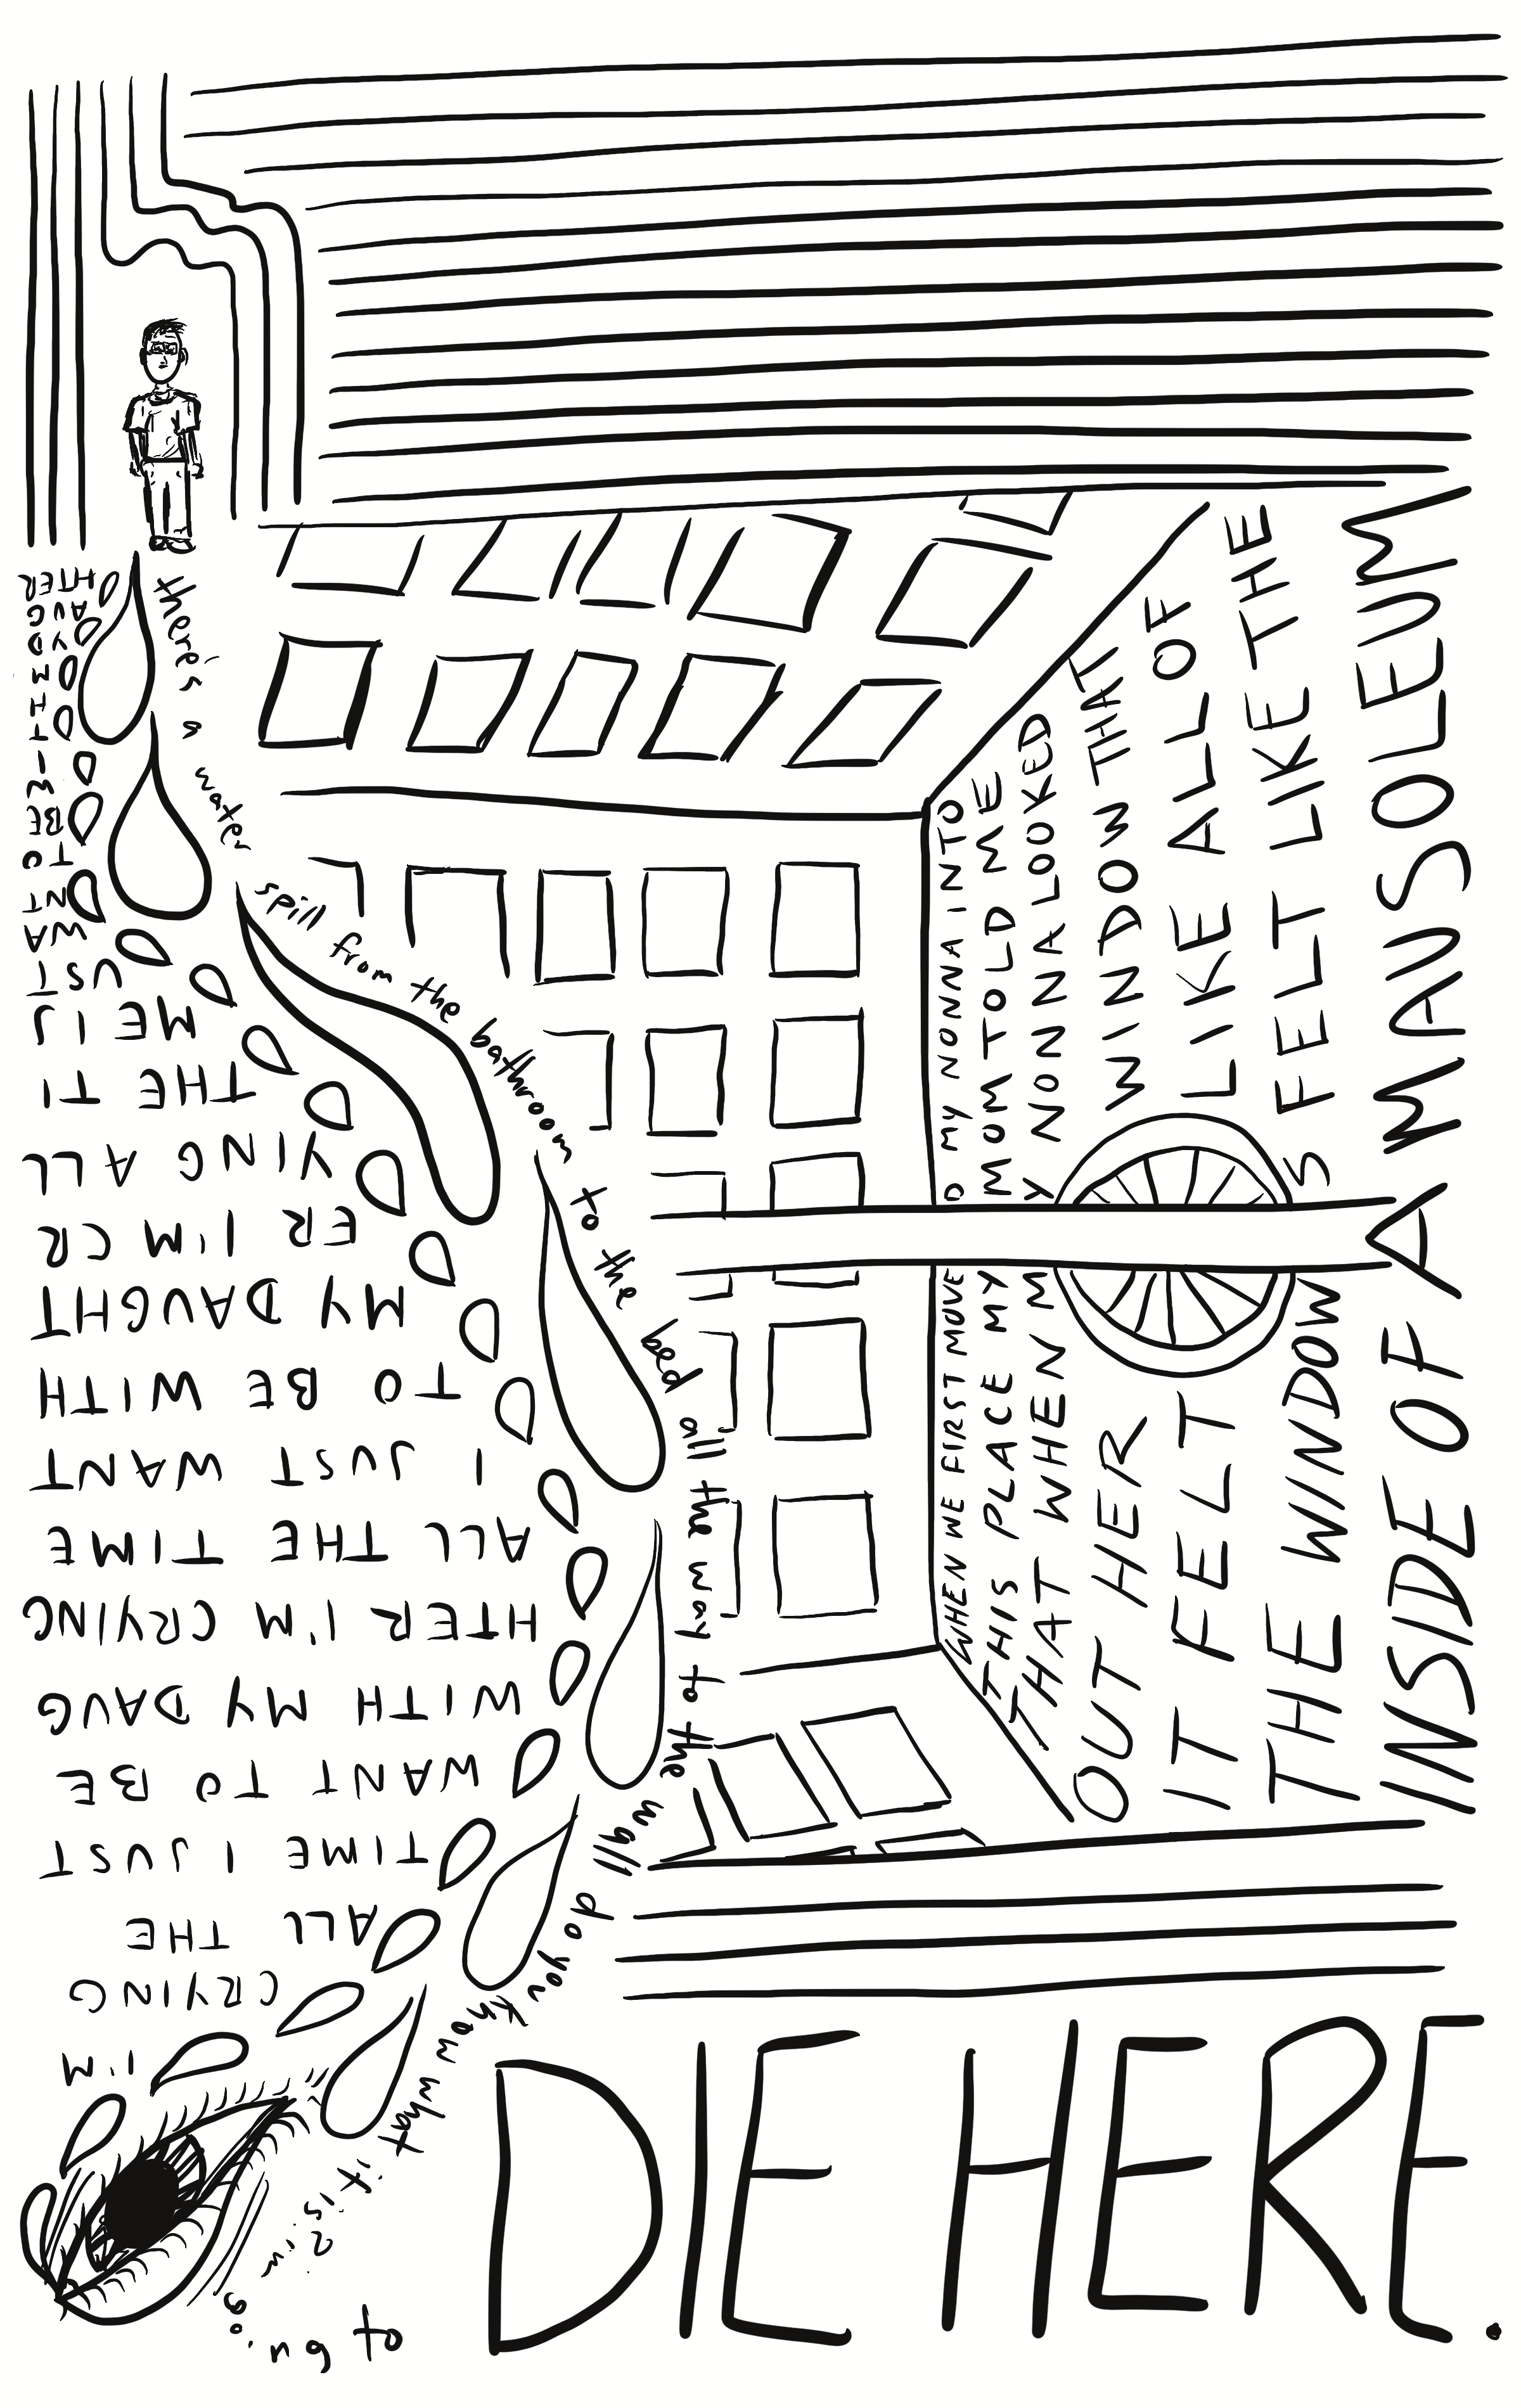 WHEN WE FIRST MOVED MY NONNA INTO
THIS PLACE MY MOM TOLD ME
THAT WHEN MY NONNA LOOKED
OUT HER WINDOW THAT
IT FELT LIKE ALL OF
THE WINDOWS FELT LIKE THE
INSIDE OF A MAUSOLEUM
there's a water spill from the bathroom to the bed all the way to the wall do you know what it is? i'm going to
DIE HERE.
I'M
CRYING
ALL THE
TIME I JUST
WANT TO BE
WITH MY DAUG
HTER I'M CRYING
ALL THE TIME
I JUST WANT
TO BE WITH
MY DAUGHT
ER I'M CR
YING ALL
THE TI
ME I J
UST
WA
NT
TO
BE
W
I
T
H
MY
DAUG
HTER